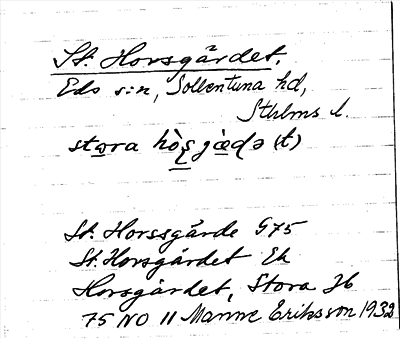 St. Horsgärdet.
Eds s:n, Sollentuna hd,
Sthlms l.
stωra hò̱ʂgæ̀ɖə (t)
St. Horssgärde G75
St. Horsgärdet Ek
Horsgärdet, Stora Jb
75 NO 11 Manne Eriksson 1932